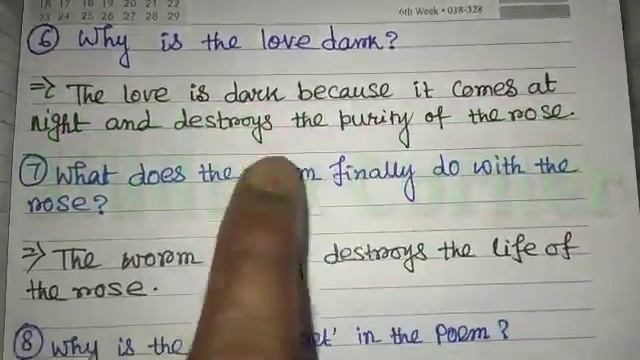 16 17 18 19 20 21 22
23 24 25 26 27 28 29
6th Week • 038-328
6 Why is the love dark?
⇒ The love is dark because it comes at
night and destroys the purity of the rose.
7 What does the finally do with the
rose?
⇒ The worm destroys the life of
the rose.
8 Why is the in the poem?